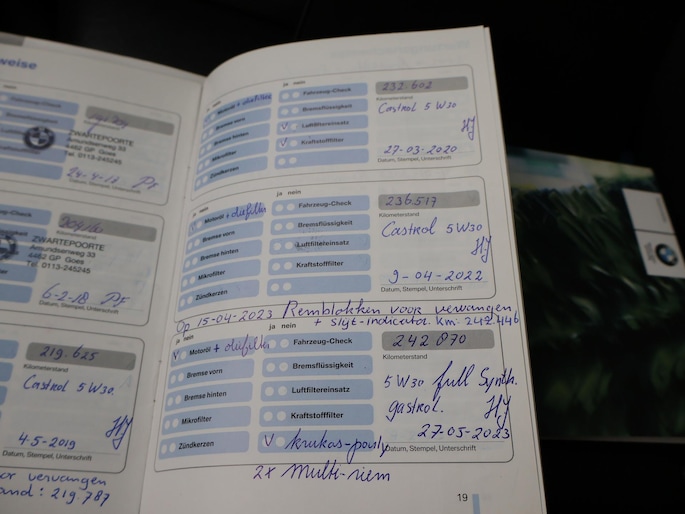 weise
ZWARTEPOORTE
Amundsenweg 33
4462 GP Goes
Tel. 0113-245245
24-4-17
ZWARTEPOORTE
Amundsenweg 33
4462 GP Goes
Tel. 0113-245245
6-2-18
Datum, Stempel, Unterschrift
219.625
Kilometerstand
Castrol 5W30.
HJ
4-5-2019
Datum, Stempel, Unterschrift
vervangen
219 787
ja nein
Motoröl + oliefilter
Bremse vorn
Bremse hinten
Mikrofilter
Zündkerzen
ja nein
Fahrzeug-Check
Bremsflüssigkeit
Luftfiltereinsatz
Kraftstofffilter
232.602
Kilometerstand
Castrol 5W30
HJ
27-03-2020
Datum, Stempel, Unterschrift
ja nein
Motoröl + oliefilter
Bremse vorn
Bremse hinten
Mikrofilter
Zündkerzen
ja nein
Fahrzeug-Check
Bremsflüssigkeit
Luftfiltereinsatz
Kraftstofffilter
236.517
Kilometerstand
Castrol 5W30
HJ
9-04-2022
Datum, Stempel, Unterschrift
Op 15-04-2023 Remblokken voor vervangen
+ slijt-indicator. Km: 242.446
ja nein
Motoröl + oliefilter
Bremse vorn
Bremse hinten
Mikrofilter
Zündkerzen
ja nein
Fahrzeug-Check
Bremsflüssigkeit
Luftfiltereinsatz
Kraftstofffilter
krukas-pouly
2x Multi-riem
242.870
Kilometerstand
5W30 full Synth.
gastrol.
HJ
27-05-2023
Datum, Stempel, Unterschrift
19